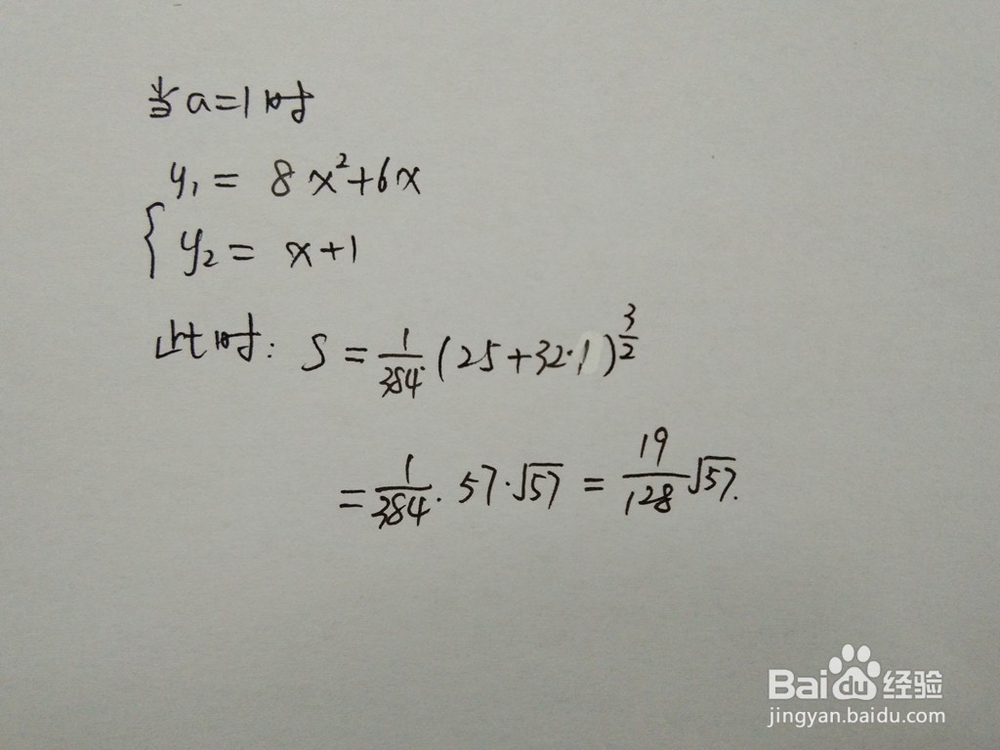 当a=1时
y₁ = 8x²+6x
y₂ = x+1
此时: S = 1/384 · (25+32·1)^(3/2)
= 1/384 · 57·√57 = 19/128 √57.
Baidu 经验
jingyan.baidu.com